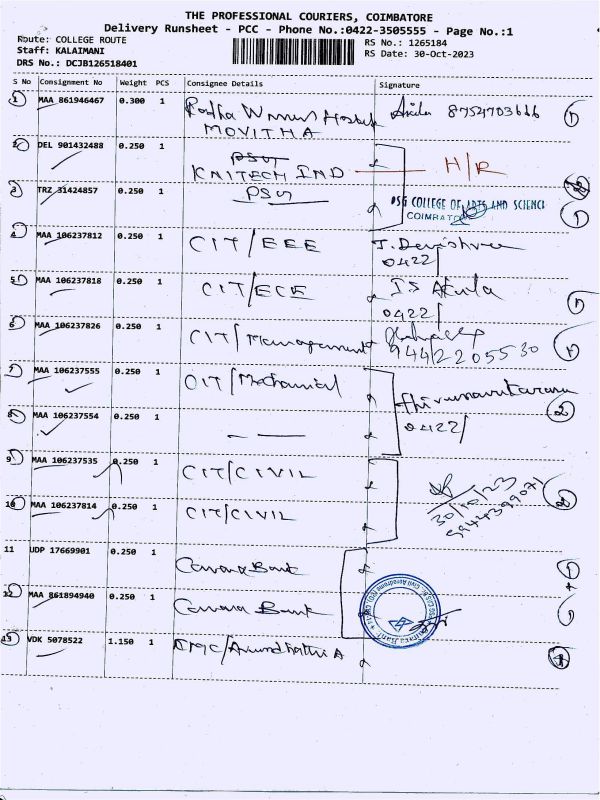 THE PROFESSIONAL COURIERS, COIMBATORE
Delivery Runsheet - PCC - Phone No.:0422-3505555 - Page No.:1
Route: COLLEGE ROUTE
Staff: KALAIMANI
DRS No.: DCJB126518401
RS No.: 1265184
RS Date: 30-Oct-2023
S No Consignment No Weight PCS Consignee Details Signature
1 MAA 861946467 0.300 1 Radha Womens Hostel 8754703666 1
MOVITHA
2 DEL 901432488 0.250 1 PSG
KNITECH IND H/R
3 TRZ 31424857 0.250 1 PSG PSG COLLEGE OF ARTS AND SCIENCE 1
COIMBATO
4 MAA 106237812 0.250 1 CIT/EEE
0422/
5 MAA 106237818 0.250 1 CIT/ECE 1
0422/
6 MAA 106237826 0.250 1 CIT/Management 9442205530 1
7 MAA 106237555 0.250 1 CIT/Mechanical 2
8 MAA 106237554 0.250 1 — — 0422/
9 MAA 106237535 0.250 1 CIT/CIVIL 2
30/10/23
10 MAA 106237814 0.250 1 CIT/CIVIL
11 UDP 17669901 0.250 1 Canara Bank 1
12 MAA 861894940 0.250 1 Canara Bank 1
13 VDK 5078522 1.150 1